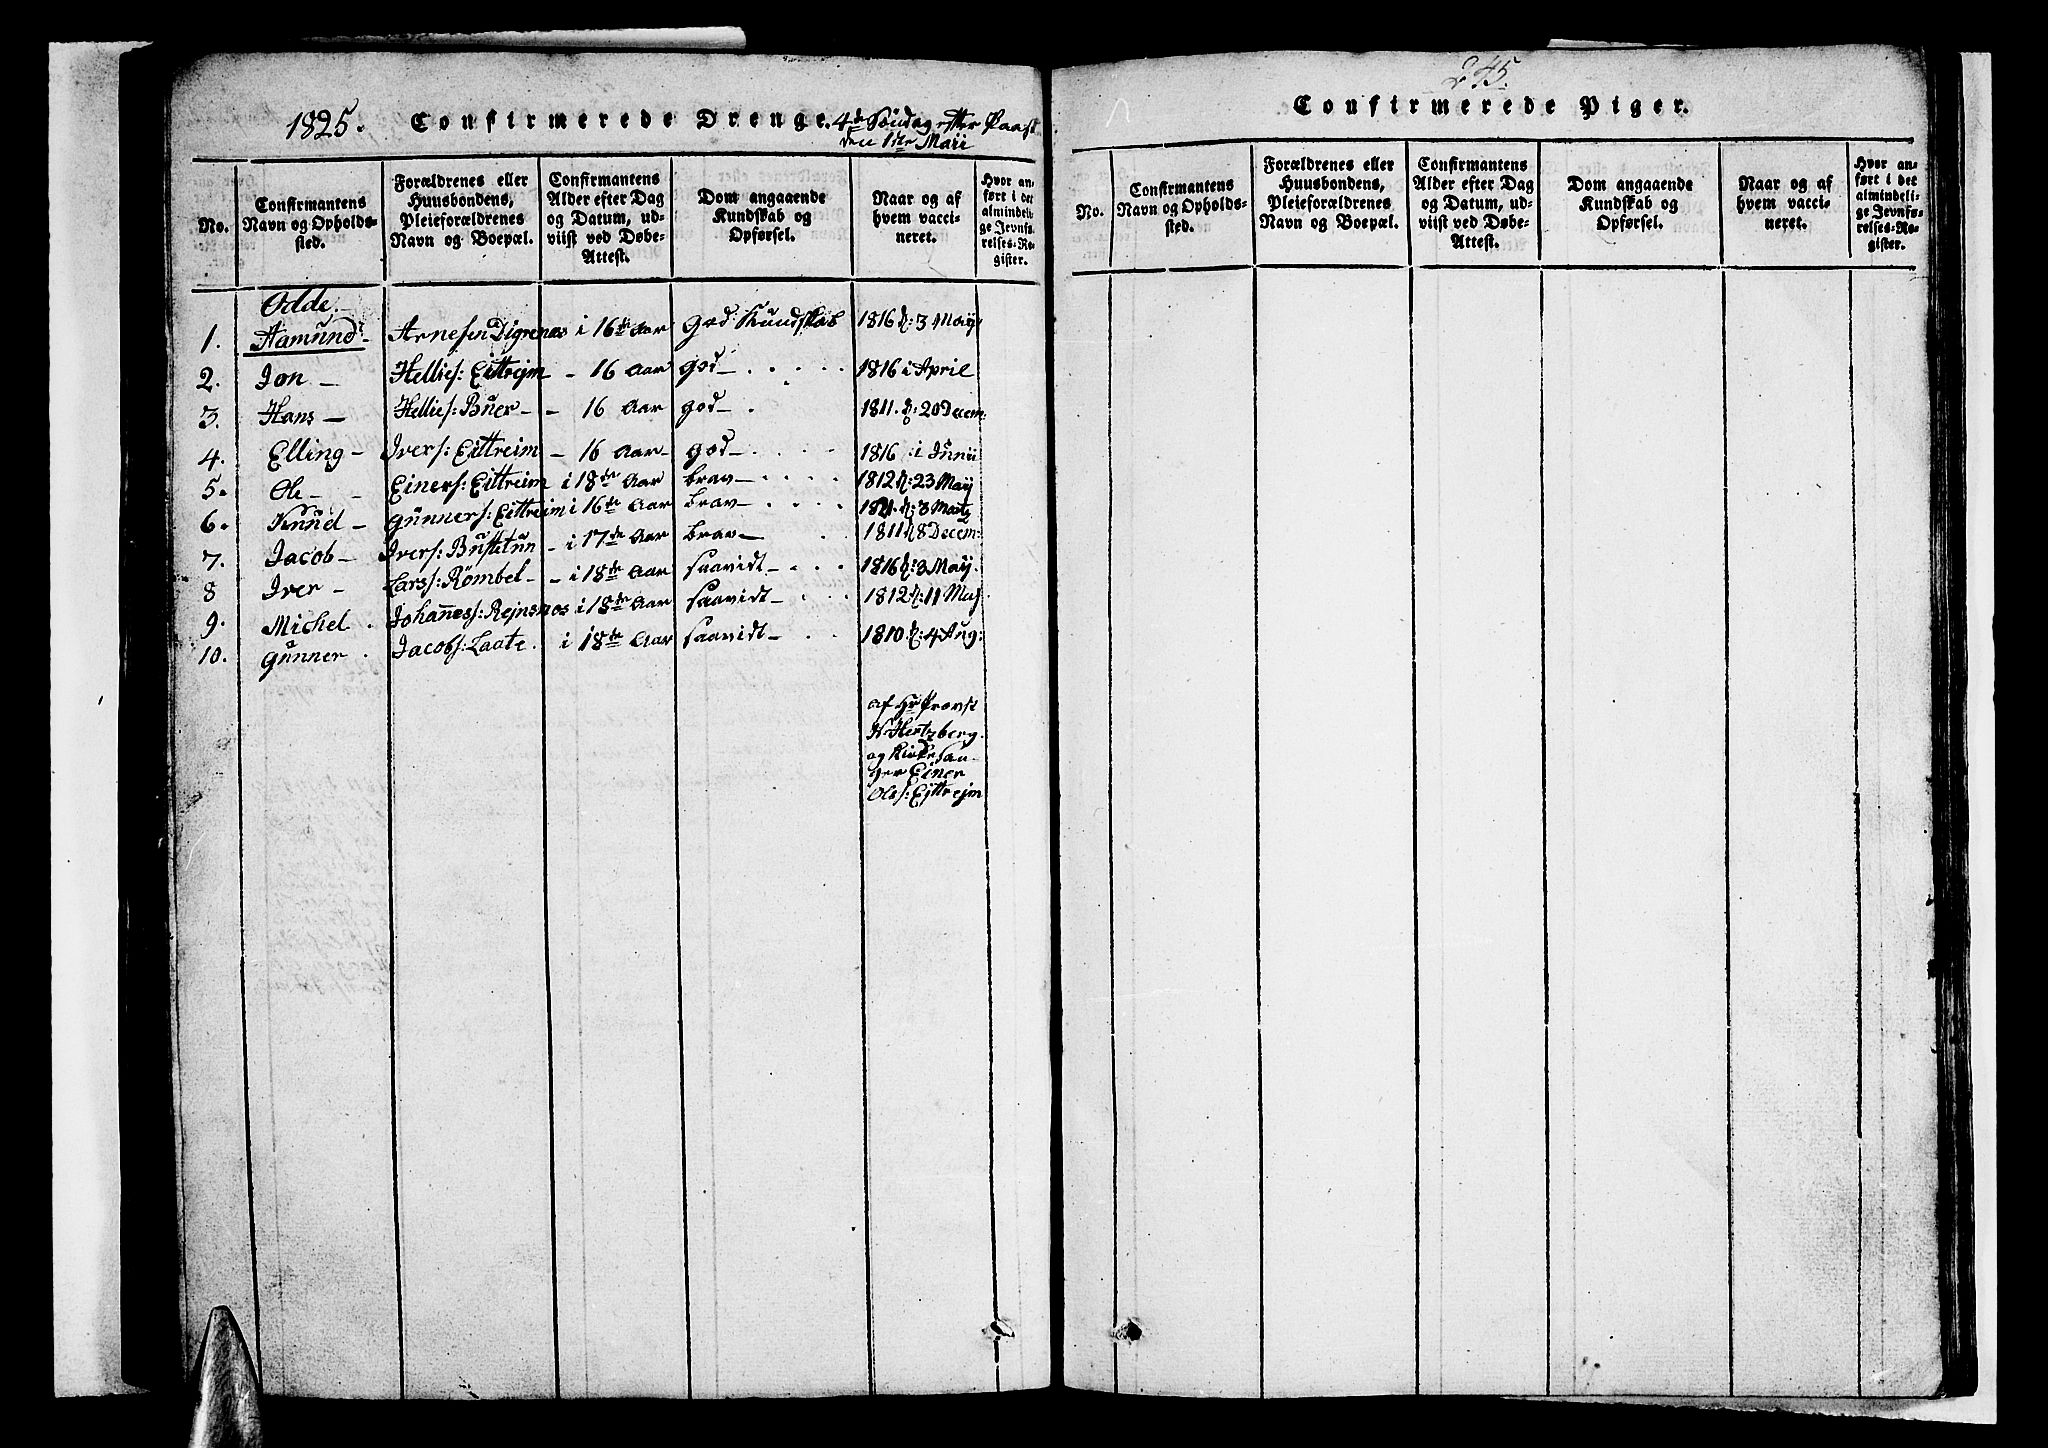 1825. Confirmerede Drenge. 4de Söndag efter Paask
den 1ste Maii
No.
Confirmantens Navn og Opholds-sted.
Forældrenes eller Huusbondens, Pleieforældrenes Navn og Boepæl.
Confirmantens Alder efter Dag og Datum, ud-viist ved Døbe-Attest.
Dom angaaende Kundskab og Opførsel.
Naar og af hvem vacci-neret.
Hvor an-ført i det almindeli-ge Jevnfø-relses-Re-gister.
Odde
1. Aamund Arnesen Digrenæs i 16de Aar God Kundskab 1816 d: 3 Maij
2. Jon Hellies: Eittrejm 16 Aar god 1816 i April
3. Hans Hellies: Buer 16 Aar god 1811. d: 20 Decem:
4. Elling Ivers: Eittreim 16 Aar god 1816 i Junii
5. Ole Einers: Eittreim i 18de Aar brav 1812 d: 23 Maij
6. Knud Gunners: Eittreim i 16de Aar brav d: 3 Martz
7. Jacob Ivers: Bustetun i 17de Aar brav 1811 d 8 Decem:
8 Iver Lars: Römbel i 18de Aar saavidt 1816 d: 3 Maij.
9. Michel Johannes: Rejnsnos i 18de Aar saavidt 1812 d: 11 Maj
10. Gunner Jacobs: Laate i 18de Aar saavidt 1810. d: 4 Aug:
af Hr Provst
N Hertzberg
og Kirkesan-
ger Einer
Ols: Ejttrejm
245.
Confirmerede Piger.
No.
Confirmantens Navn og Opholds-sted.
Forældrenes eller Huusbondens, Pleieforældrenes Navn og Boepæl.
Confirmantens Alder efter Dag og Datum, ud-viist ved Døbe-Attest.
Dom angaaende Kundskab og Opførsel.
Naar og af hvem vacci-neret.
Hvor an-ført i det almindeli-ge Jevnfø-relses-Re-gister.